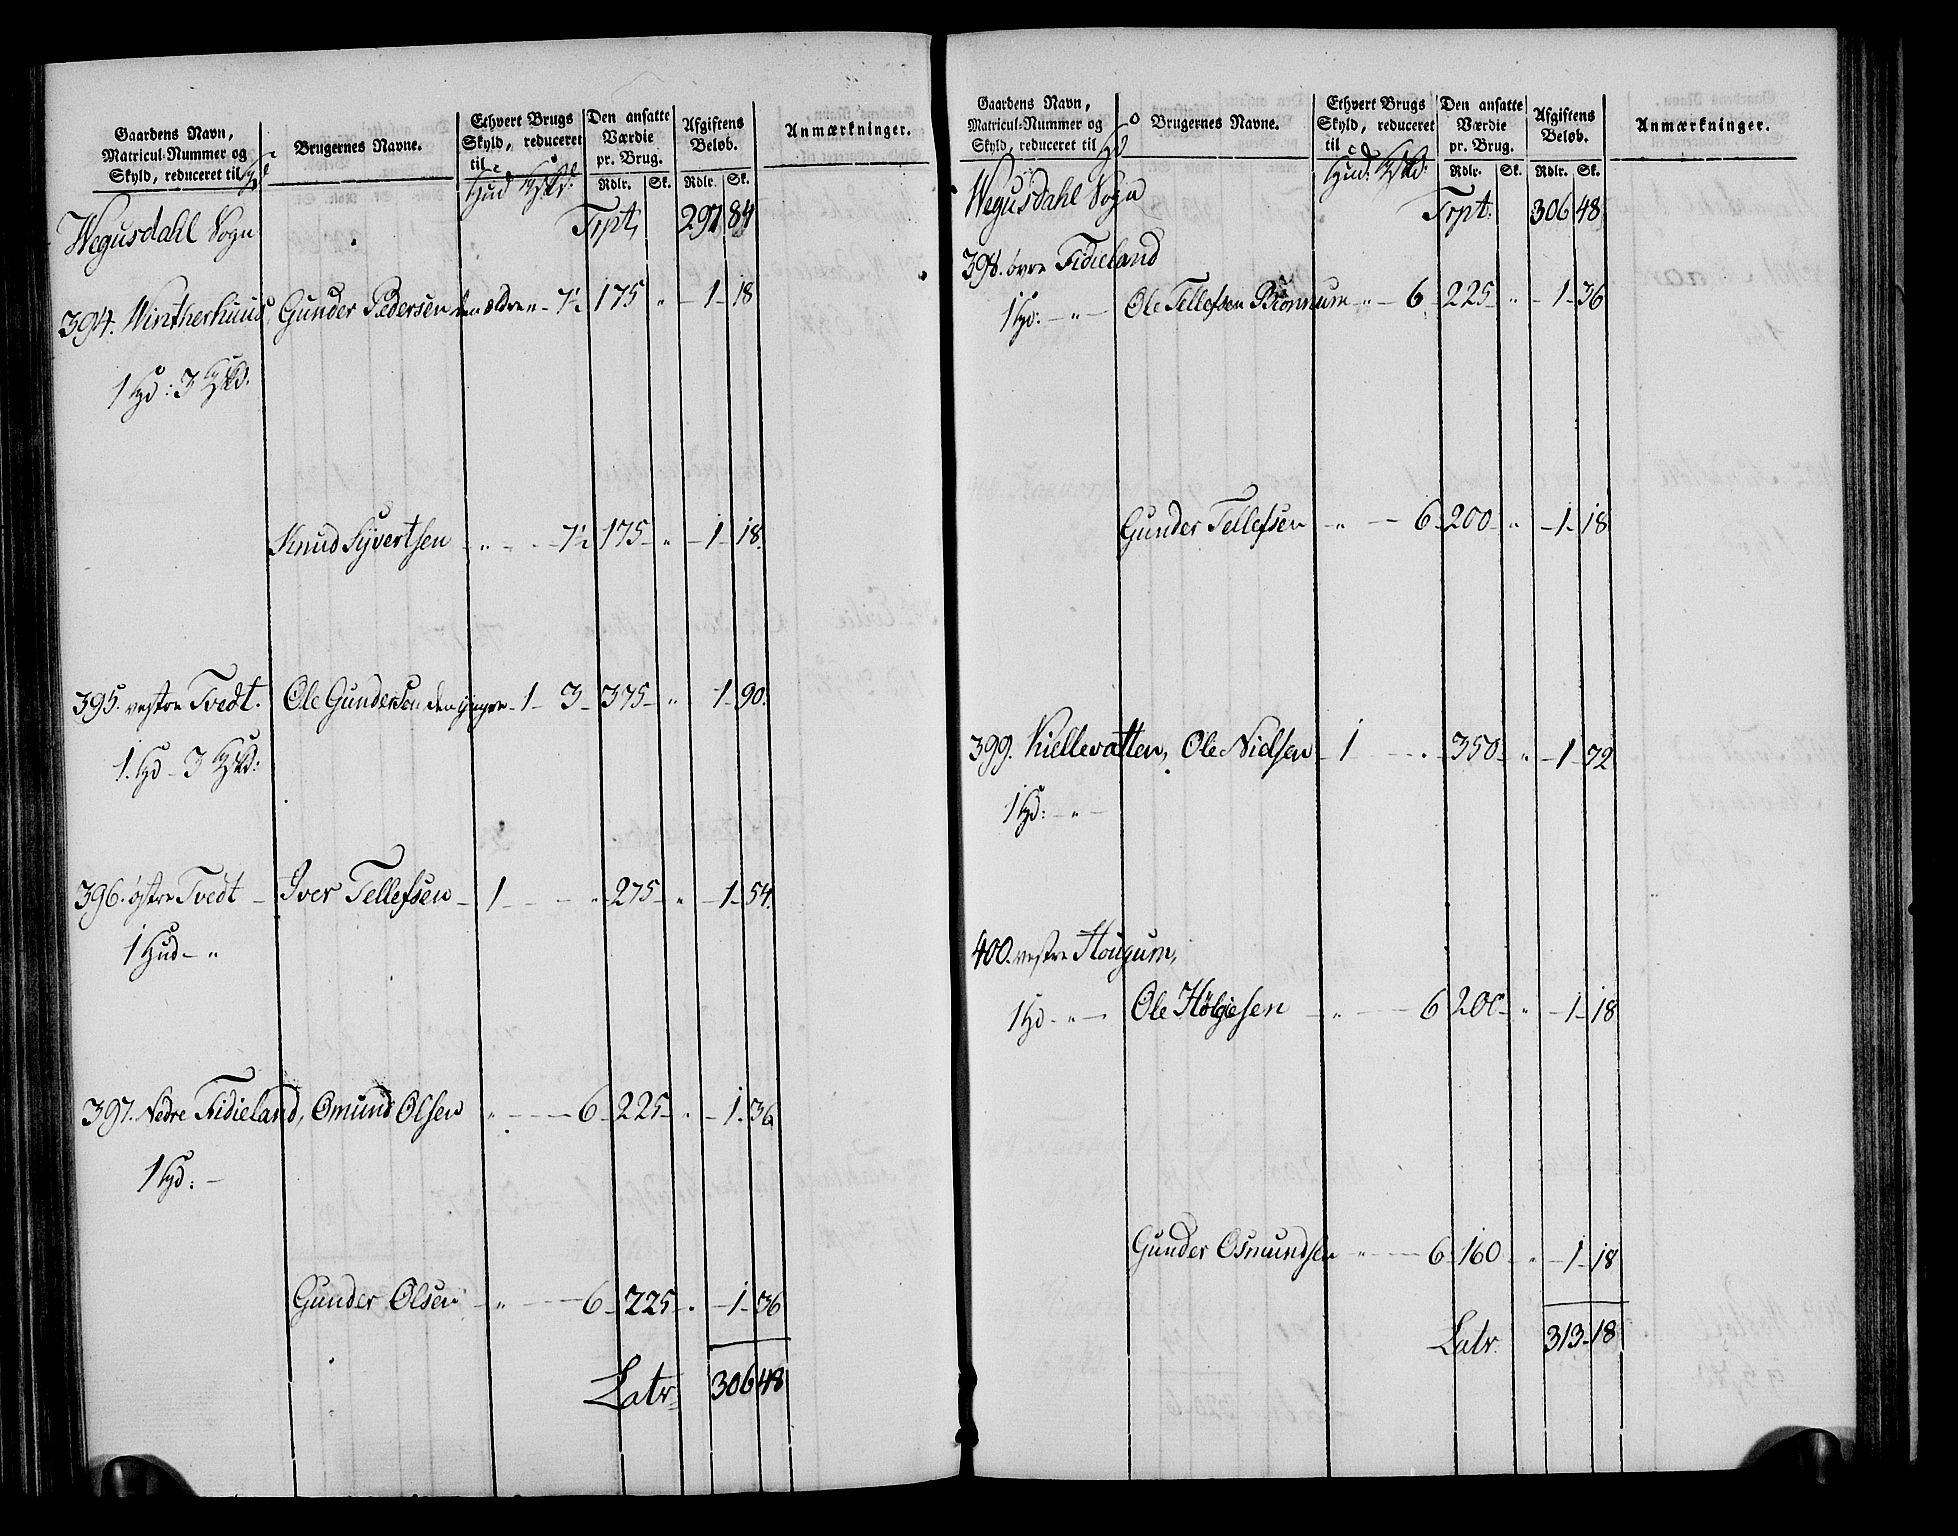 Gaardens Navn,
Matricul-Nummer og
Skyld, reduceret til
Brugernes Navne.
Ethvert Brugs
Skyld, reduceret
til
Hud
Den ansatte
Værdie
pr. Brug.
Rdlr. Sk.
Afgiftens
Beløb.
Rdlr. Sk.
Anmærkninger.
Wegusdahl Sogn Trpt, 297 84
394. Wintherhuus, Gunder Pedersen den ældre „ – 7½ 175 „ – 1 – 18
1 Hd: 3
Knud Syvertsen – „ – – 7½ 175 – „ – 1 – 18.
395. vestre Tvedt. Ole Gundersen den yngre – 1 – 3 – 375 – „ 1 – 90.
1. Hd – 3
396. østre Tvedt – Iver Tellefsen – 1 – – „ – 275 – „ – 1 – 54.
1 Hud – „
397. Nedre Fidieland, Omund Olsen „ – – – 6 – 225 – „ – 1 – 36
1 Hd: –
Gunder Olsen – „ – – – 6 – 225 – „ – 1 – 36
Latr 306 48
Gaardens Navn,
Matricul-Nummer og
Skyld, reduceret til
Brugernes Navne.
Ethvert Brugs
Skyld, reduceret
til
Hud.
Den ansatte
Værdie
pr. Brug.
Rdlr. Sk.
Afgiftens
Beløb.
Rdlr. Sk.
Anmærkninger.
Wegusdahl Sogn Trpt. 306 48
398. øvre Fidieland
1 Hd: – „ – Ole Tellefsen „ – 6 – 225 „ – 1 – 36
Gunder Tellefsen – „ – 6 – 200 – „ – 1 – 18
399. Kiellevatten, Ole Nielsen – 1 – – „ – 350 – „ – 1 – 72
1 Hd: – „ –
400. vestre Hougum,
1 Hd – „ – Ole Hølgiesen – „ – – 6 200 – „ – 1 – 18
Gunder Osmundsen „ – – 6 – 160 „ – 1 – 18
Latr. 313 – 18